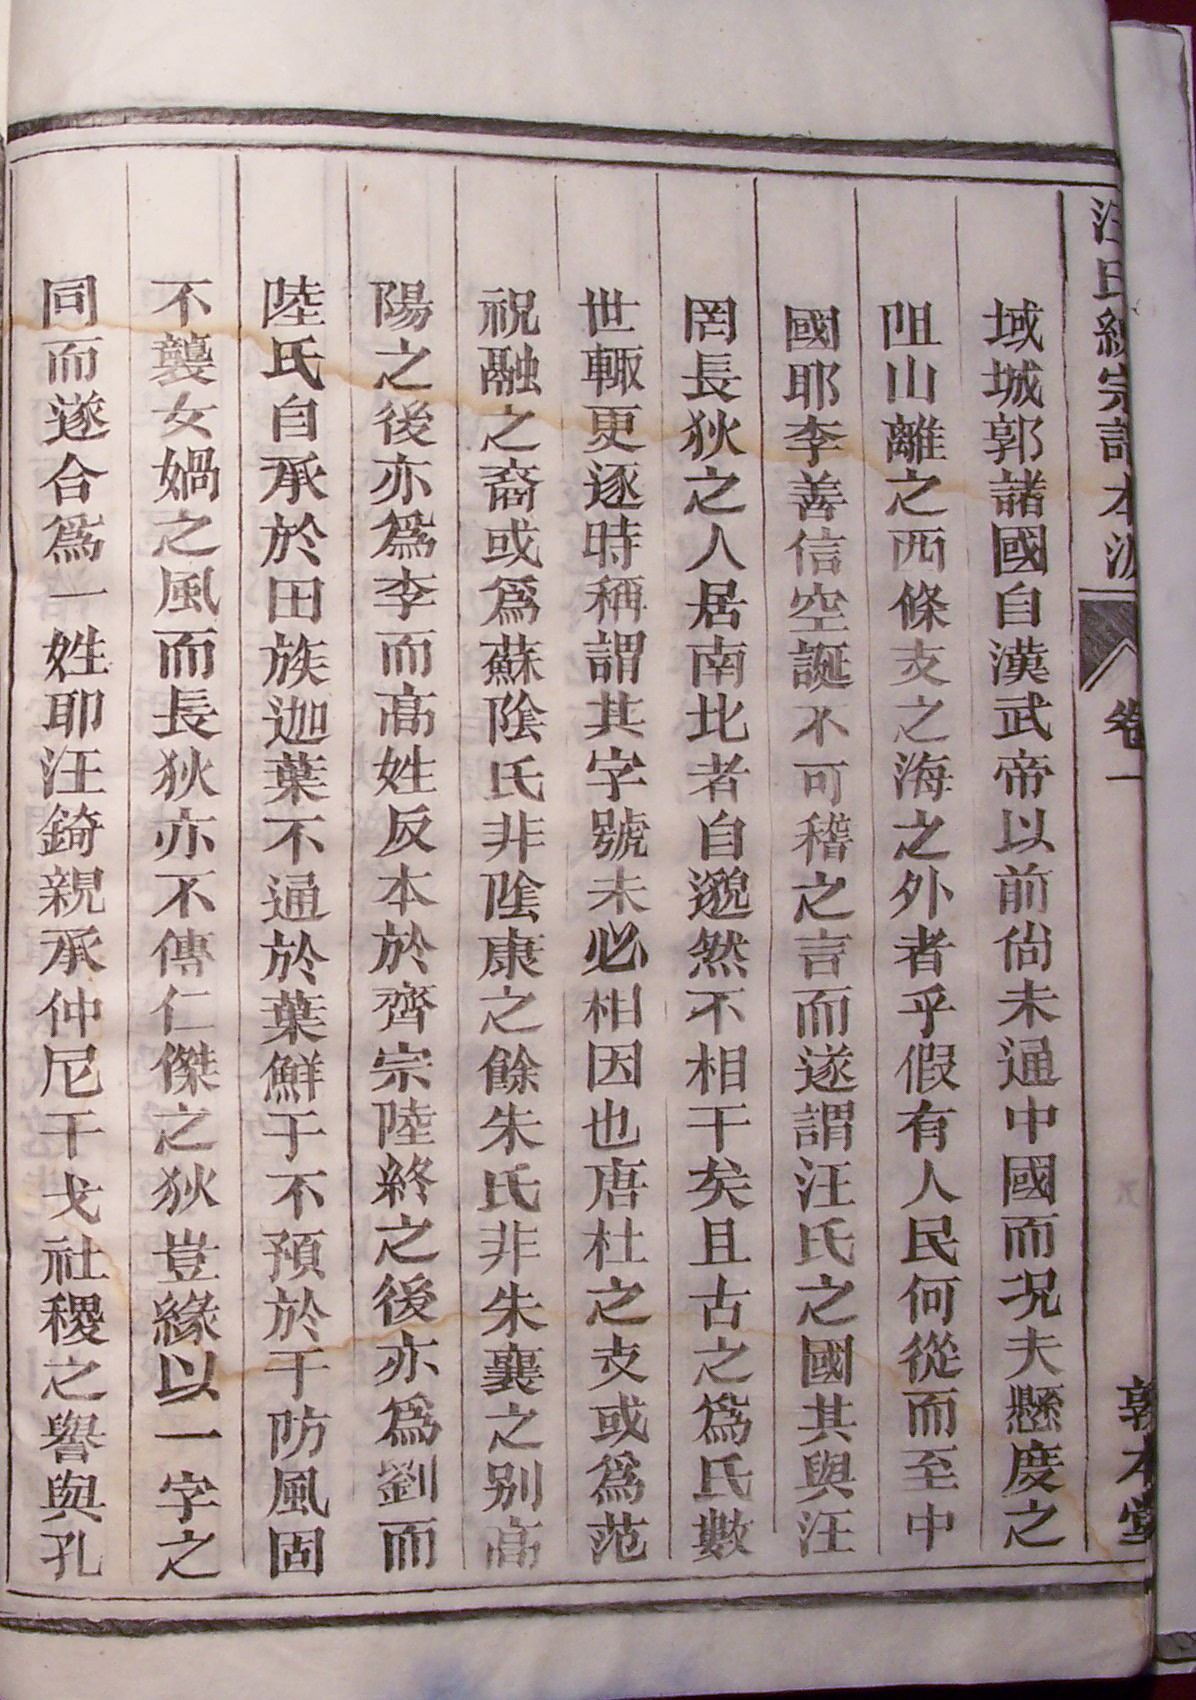 汪氏統宗譜 本派 卷一 敦本堂
域城郭諸國自漢武帝以前尙未通中國而况夫懸度之
阻山離之西條支之海之外者乎假有人民何從而至中
國耶李善信空誕不可稽之言而遂謂汪氏之國其與汪
罔長狄之人居南北者自邈然不相干矣且古之爲氏數
世輙更逐時稱謂其字號未必相因也唐杜之支或爲范
祝融之裔或爲蘇陰氏非陰康之餘朱氏非朱襄之别高
陽之後亦爲李而高姓反本於齊宗陸終之後亦爲劉而
陸氏自承於田族迦葉不通於葉鮮于不預於于防風固
不襲女媧之風而長狄亦不傳仁傑之狄豈緣以一字之
同而遂合爲一姓耶汪錡親承仲尼干戈社稷之譽與孔